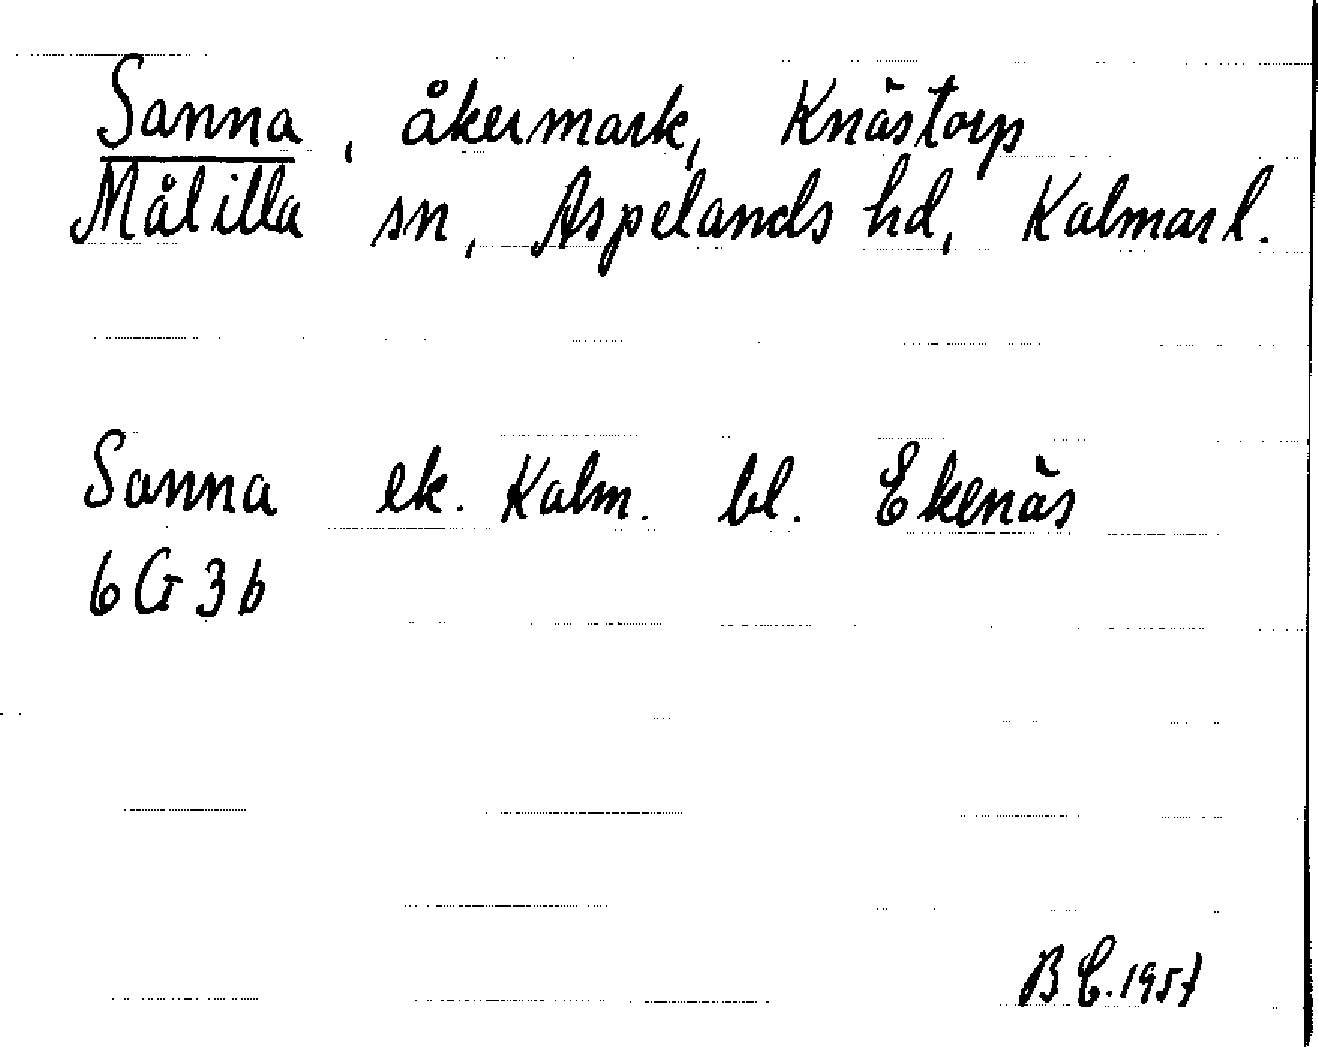 Sanna, åkermark, Knästorp
Målilla sn, Aspelands hd, Kalmar l.
Sanna ek. Kalm. bl. Ekenäs
6G3b
B E. 1957